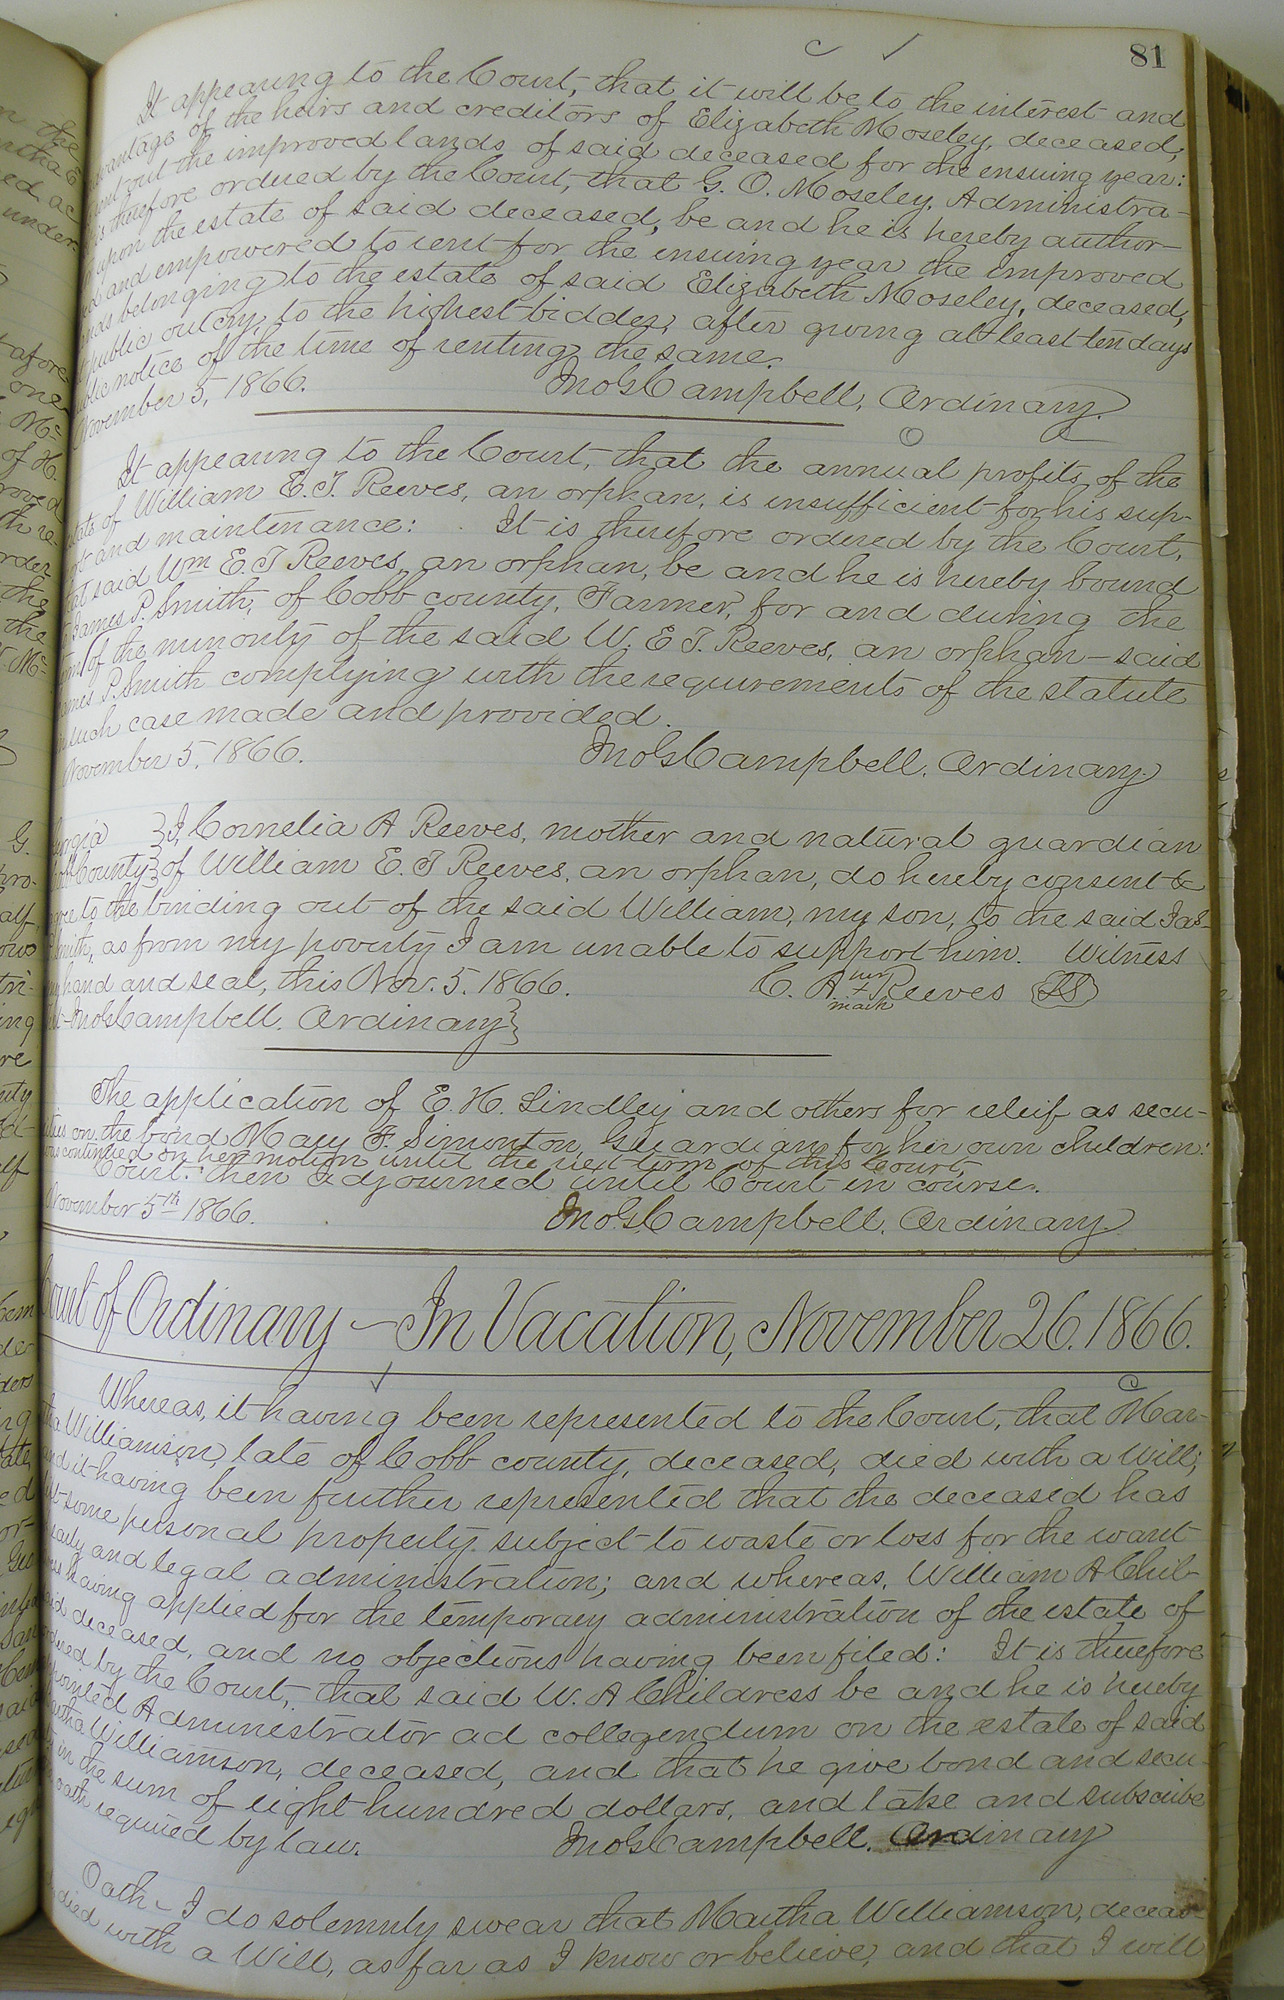 81
It appearing to the Court, that it will be to the interest and
vantage of the heirs and creditors of Elizabeth Moseley, deceased,
rent out the improved lands of said deceased for the ensuing year:
is therefore ordered by the Court, that G. O. Moseley, Administra-
upon the estate of said deceased, be and he is hereby author-
ed and empowered to rent for the ensuing year the improved
nds belonging to the estate of said Elizabeth Moseley, deceased,
public outcry, to the highest bidder, after giving at least ten days
blic notice of the time of renting the same.
November 5, 1866. Jno G Campbell, Ordinary.
It appearing to the Court, that the annual profits of the
tate of William E. T. Reeves, an orphan, is insufficient for his sup-
rt and maintenance: It is therefore ordered by the Court,
at said Wm E T Reeves, an orphan, be and he is hereby bound
James P. Smith, of Cobb county, Farmer, for and during the
term of the minority of the said W. E T. Reeves, an orphan — said
ames P. Smith complying with the requirements of the statute
such case made and provided.
November 5, 1866. Jno G Campbell, Ordinary.
orgia } I, Cornelia A Reeves, mother and natural guardian
County } of William E. T Reeves, an orphan, do hereby consent &
gree to the binding out of the said William, my son, to the said Jas
Smith, as from my poverty I am unable to support him. Witness
hand and seal, this Nov. 5. 1866. C. A her + mark Reeves (LS)
Jno G Campbell, Ordinary }
The application of E. H. Lindley and others for releif as secu-
ities on the bond Mary F. Simonton, Guardian for her own children:
continued on her motion until the next term of this Court.
Court: then adjourned until Court in course.
November 5th 1866. Jno G Campbell, Ordinary
Court of Ordinary — In Vacation, November 26. 1866.
Whereas, it having been represented to the Court, that Mar-
tha Williamson, late of Cobb county, deceased, died with a Will;
and it having been further represented that the deceased has
some personal property subject to waste or loss for the want
early and legal administration; and whereas, William A Chil-
having applied for the temporary administration of the estate of
said deceased, and no objections having been filed: It is therefore
ordered by the Court, that said W. A Childress be and he is hereby
ppointed Administrator ad collegendum on the estate of said
artha Williamson, deceased, and that he give bond and secu-
in the sum of eight hundred dollars, and take and subscribe
oath required by law. Jno G Campbell, Ordinary
Oath – I do solemnly swear that Martha Williamson, deceas-
died with a Will, as far as I know or believe, and that I will